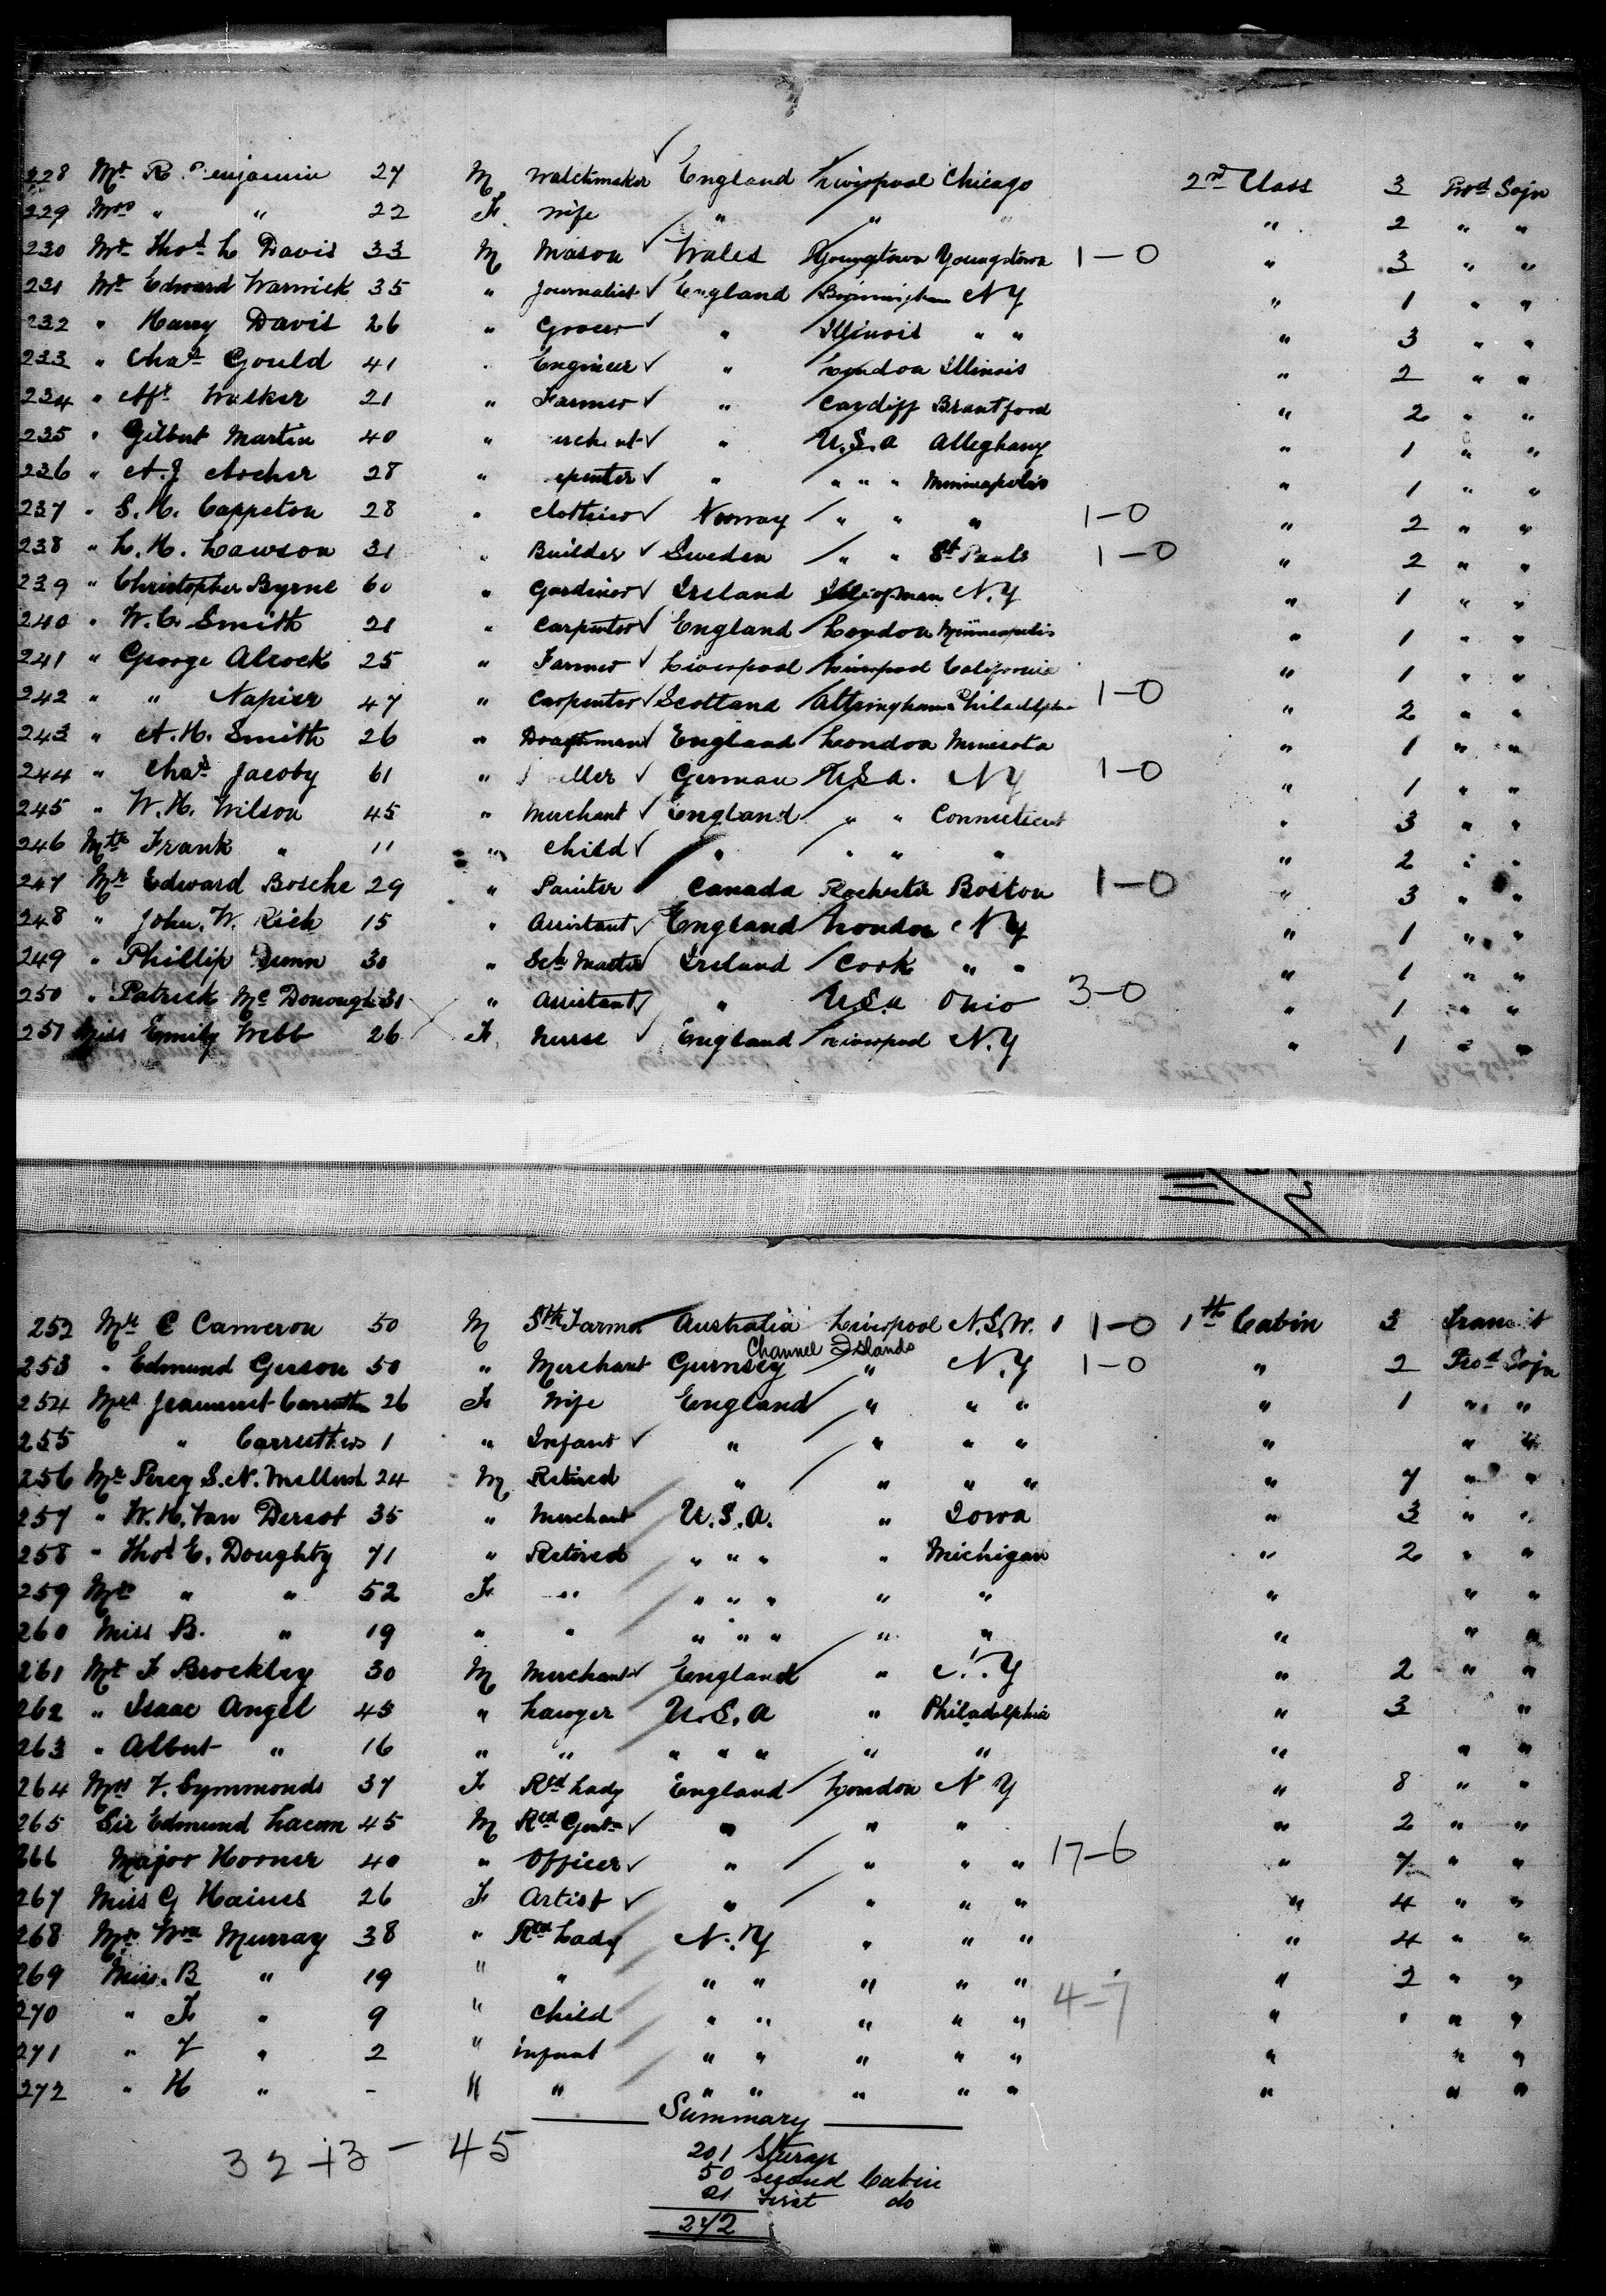 228 Mr R. enjamin 27 M Watchmaker England Liverpool Chicago 2nd Class 3 Prod Sojn
229 Mrs " " 22 F Wife " " " " 2 " "
230 Mr Thos L Davis 33 M Mason Wales Youngstown Youngstown 1-0 " 3 " "
231 Mr Edward Warwick 35 " Journalist England Birmingham NY " 1 " "
232 " Harry Davis 26 " Grocer " Illinois " " " 3 " "
233 " Chas Gould 41 " Engineer " London Illinois " 2 " "
234 " Alfr Walker 21 " Farmer " Cardiff Brantford " 2 " "
235 " Gilbert Martin 40 " erch nt " U.S.a Alleghany " 1 " "
236 " A.J Archer 28 " epenter " " " " Minneapolis " 1 " "
237 " S.H. Cappston 28 " Clothier Norway " " " 1-0 " 2 " "
238 " L.H. Lawson 31 " Builder Sweden " " St Pauls 1-0 " 2 " "
239 " Christopher Byrne 60 " Gardiner Ireland Isle of Man N.Y " 1 " "
240 " W.C. Smith 21 " Carpenter England London Minneapolis " 1 " "
241 " George Alcock 25 " Farmer Liverpool Liverpool California " 1 " "
242 " " Napier 47 " Carpenter Scotland Altringham Philadelphia 1-0 " 2 " "
243 " A.H. Smith 26 " Draftsman England London Minesota " 1 " "
244 " Chas Jacoby 61 " eller German U.S.a. NY 1-0 " 1 " "
245 " W.H. Wilson 45 " Merchant England " " Connecticut " 3 " "
246 Mtr Frank " 11 " Child " " " " " 2 " "
247 Mr Edward Bosche 29 " Painter Canada Rochester Boston 1-0 " 3 " "
248 " John. W. Rich 15 " Assistant England London NY " 1 " "
249 " Phillip Dunn 30 " Sch Master Ireland Cork " " " 1 " "
250 " Patrick McDonough 31 " Assistant " U.S.a Ohio 3-0 " 1 " "
251 Miss Emily Webb 26 F Nurse England Liverpool N.Y " 1 " "
252 Mr C Cameron 50 M Sth Farmer Australia Liverpool N.S.W. 1 1-0 1th Cabin 3 Transit
Channel Islands
253 " Edmund Gerson 50 " Merchant Gurnsey " N.Y 1-0 " 2 Prod Sojn
254 Mrs Jeannut Carruthers 26 F Wife England " " " " 1 " "
255 " Carruthers 1 " Infant " " " " " " "
256 Mr Percy S.N. Mellush 24 M Retired " " " " " 7 " "
257 " W.H. Van Dersot 35 " Merchant U.S.A. " Iowa " 3 " "
258 " Thos E. Doughty 71 " Retired " " " " Michigan " 2 " "
259 Mrs " " 52 F " " " " " " " " "
260 Miss B. " 19 " " " " " " " " " "
261 Mr F Brockley 30 M Merchant England " N.Y " 2 " "
262 " Isaac Angel 45 " Lawyer U.S.A " Philadelphia " 3 "
263 " Albert " 16 " " " " " " " " " "
264 Mrs V. Symmonds 37 F Rtd Lady England London NY " 8 " "
265 Sir Edmund Lacon 45 M Rtd Gent " " " " 2 " "
266 Major Horner 40 " Officer " " " " 17-6 " 7 " "
267 Miss G Haines 26 F Artist " " " " " 4 " "
268 Mrs Wm Murray 38 " Rtd Lady N.Y " " " " 4 " "
269 Miss. B " 19 " " " " " " " 4-7 " 2 " "
270 " F " 9 " Child " " " " " " " "
271 " V " 2 " Infant " " " " " " " "
272 " H " - " " " " " " " " " "
Summary
32 13 - 45
201 Steerage
50 Second Cabin
21 First do
272